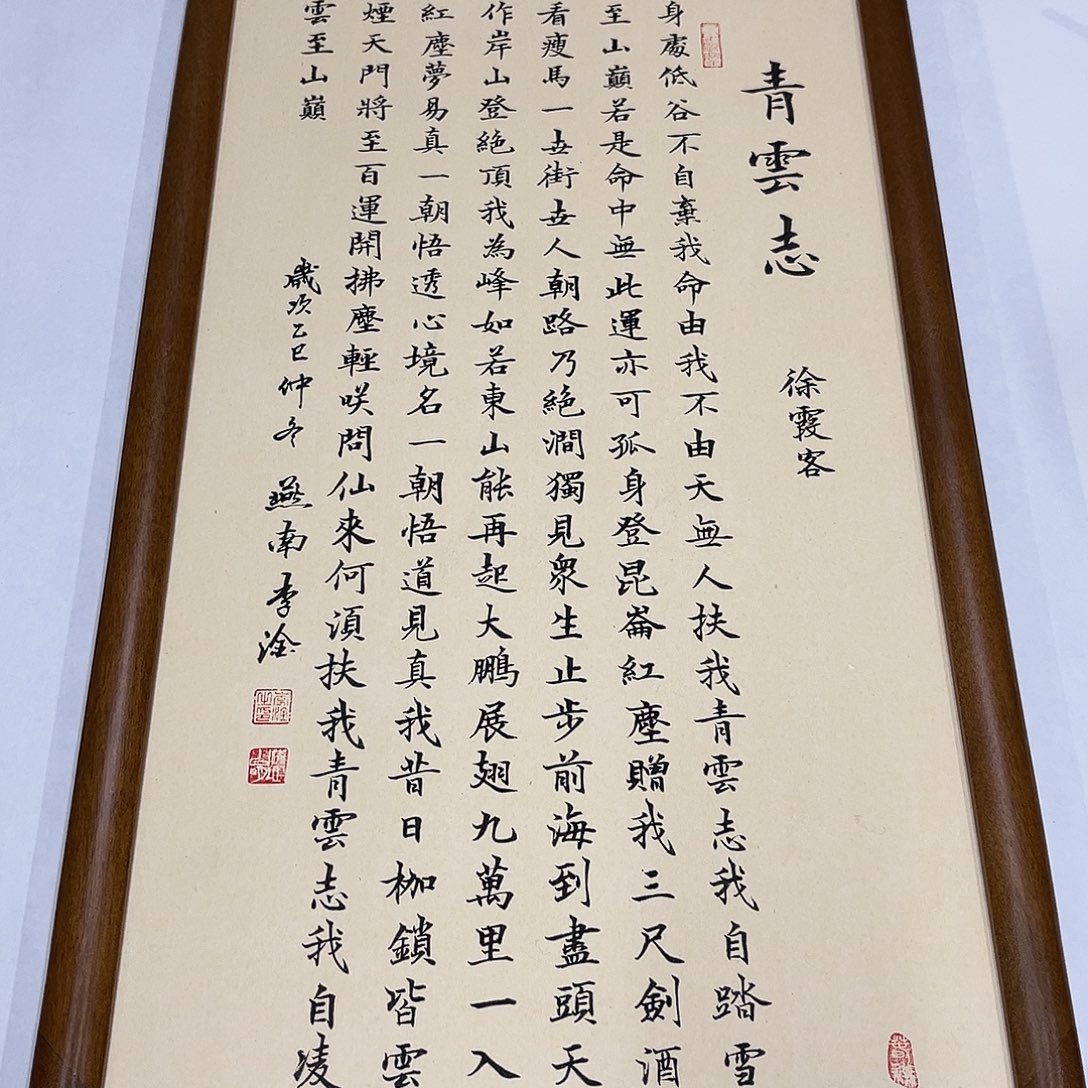 青雲志
徐霞客
身處低谷不自棄我命由我不由天無人扶我青雲志我自踏雪
至山巔若是命中無此運亦可孤身登昆崙紅塵贈我三尺劍酒
看瘦馬一世街世人朝路乃絕澗獨見眾生止步前海到盡頭天
作岸山登絕頂我為峰如若東山能再起大鵬展翅九萬里一入
紅塵夢易真一朝悟透心境名一朝悟道見真我昔日枷鎖皆雲
煙天門將至百運開拂塵輕咲問仙來何須扶我青雲志我自凌
雲至山巔
歲次乙巳仲冬燕南李淦